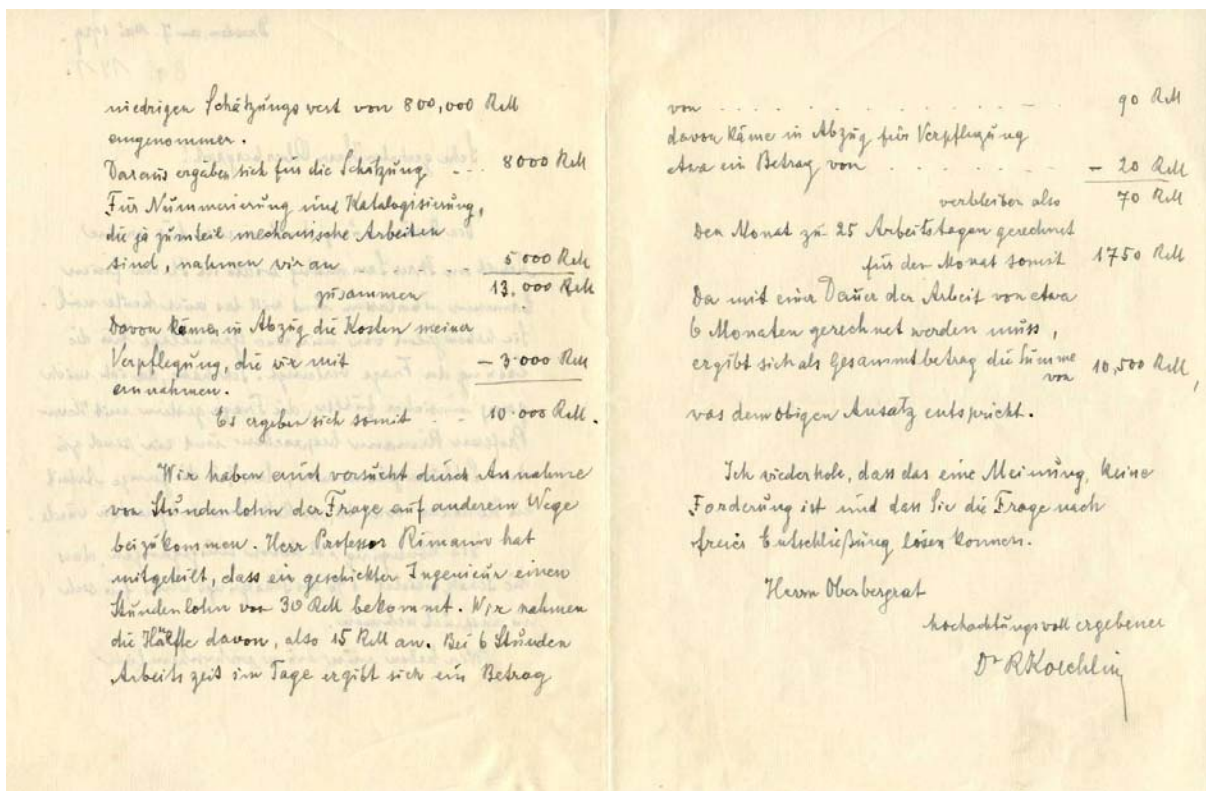 niedrigen Schätzungswert von 800,000 RM
angenommen.
Daraus ergaben sich für die Schätzung ... 8000 RM
Für Nummerierung und Katalogisierung,
die ja zumteil mechanische Arbeiten
sind, nahmen wir an ... 5000 RM
zusammen 13.000 RM
Davon käme in Abzug die Kosten meiner
Verpflegung, die wir mit – 3.000 RM
annahmen.
Es ergeben sich somit . . 10.000 RM.
Wir haben auch versucht durch Annahme
von Stundenlohn der Frage auf anderem Wege
beizukommen. Herr Professor Rimann hat
mitgeteilt, dass ein geschickter Ingenieur einen
Stundenlohn von 30 RM bekommt. Wir nahmen
die Hälfte davon, also 15 RM an. Bei 6 Stunden
Arbeitszeit im Tage ergibt sich ein Betrag
von . . . . . . . . . . . . . . . 90 RM
davon käme in Abzug für Verpflegung
etwa ein Betrag von . . . . . . . – 20 RM
verbleiben also 70 RM
Den Monat zu 25 Arbeitstagen gerechnet
für den Monat somit 1750 RM
Da mit einer Dauer der Arbeit von etwa
6 Monaten gerechnet werden muss,
ergibt sich als Gesammtbetrag die Summe
von 10,500 RM,
was dem obigen Ansatz entspricht.
Ich wiederhole, dass das eine Meinung, keine
Forderung ist und dass Sie die Frage nach
freier Entschließung lösen können.
Herrn Oberbergrat
hochachtungsvoll ergebener
Dr RKoechlin